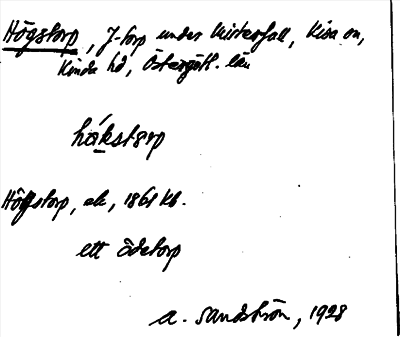 Högstorp, J-torp under Misterfall, Kisa sn,
Kinda hd, Östergötl. län
håkstorp
Högstorp, ale, 1861 kb.
ett ödetorp
A. Sandström, 1928